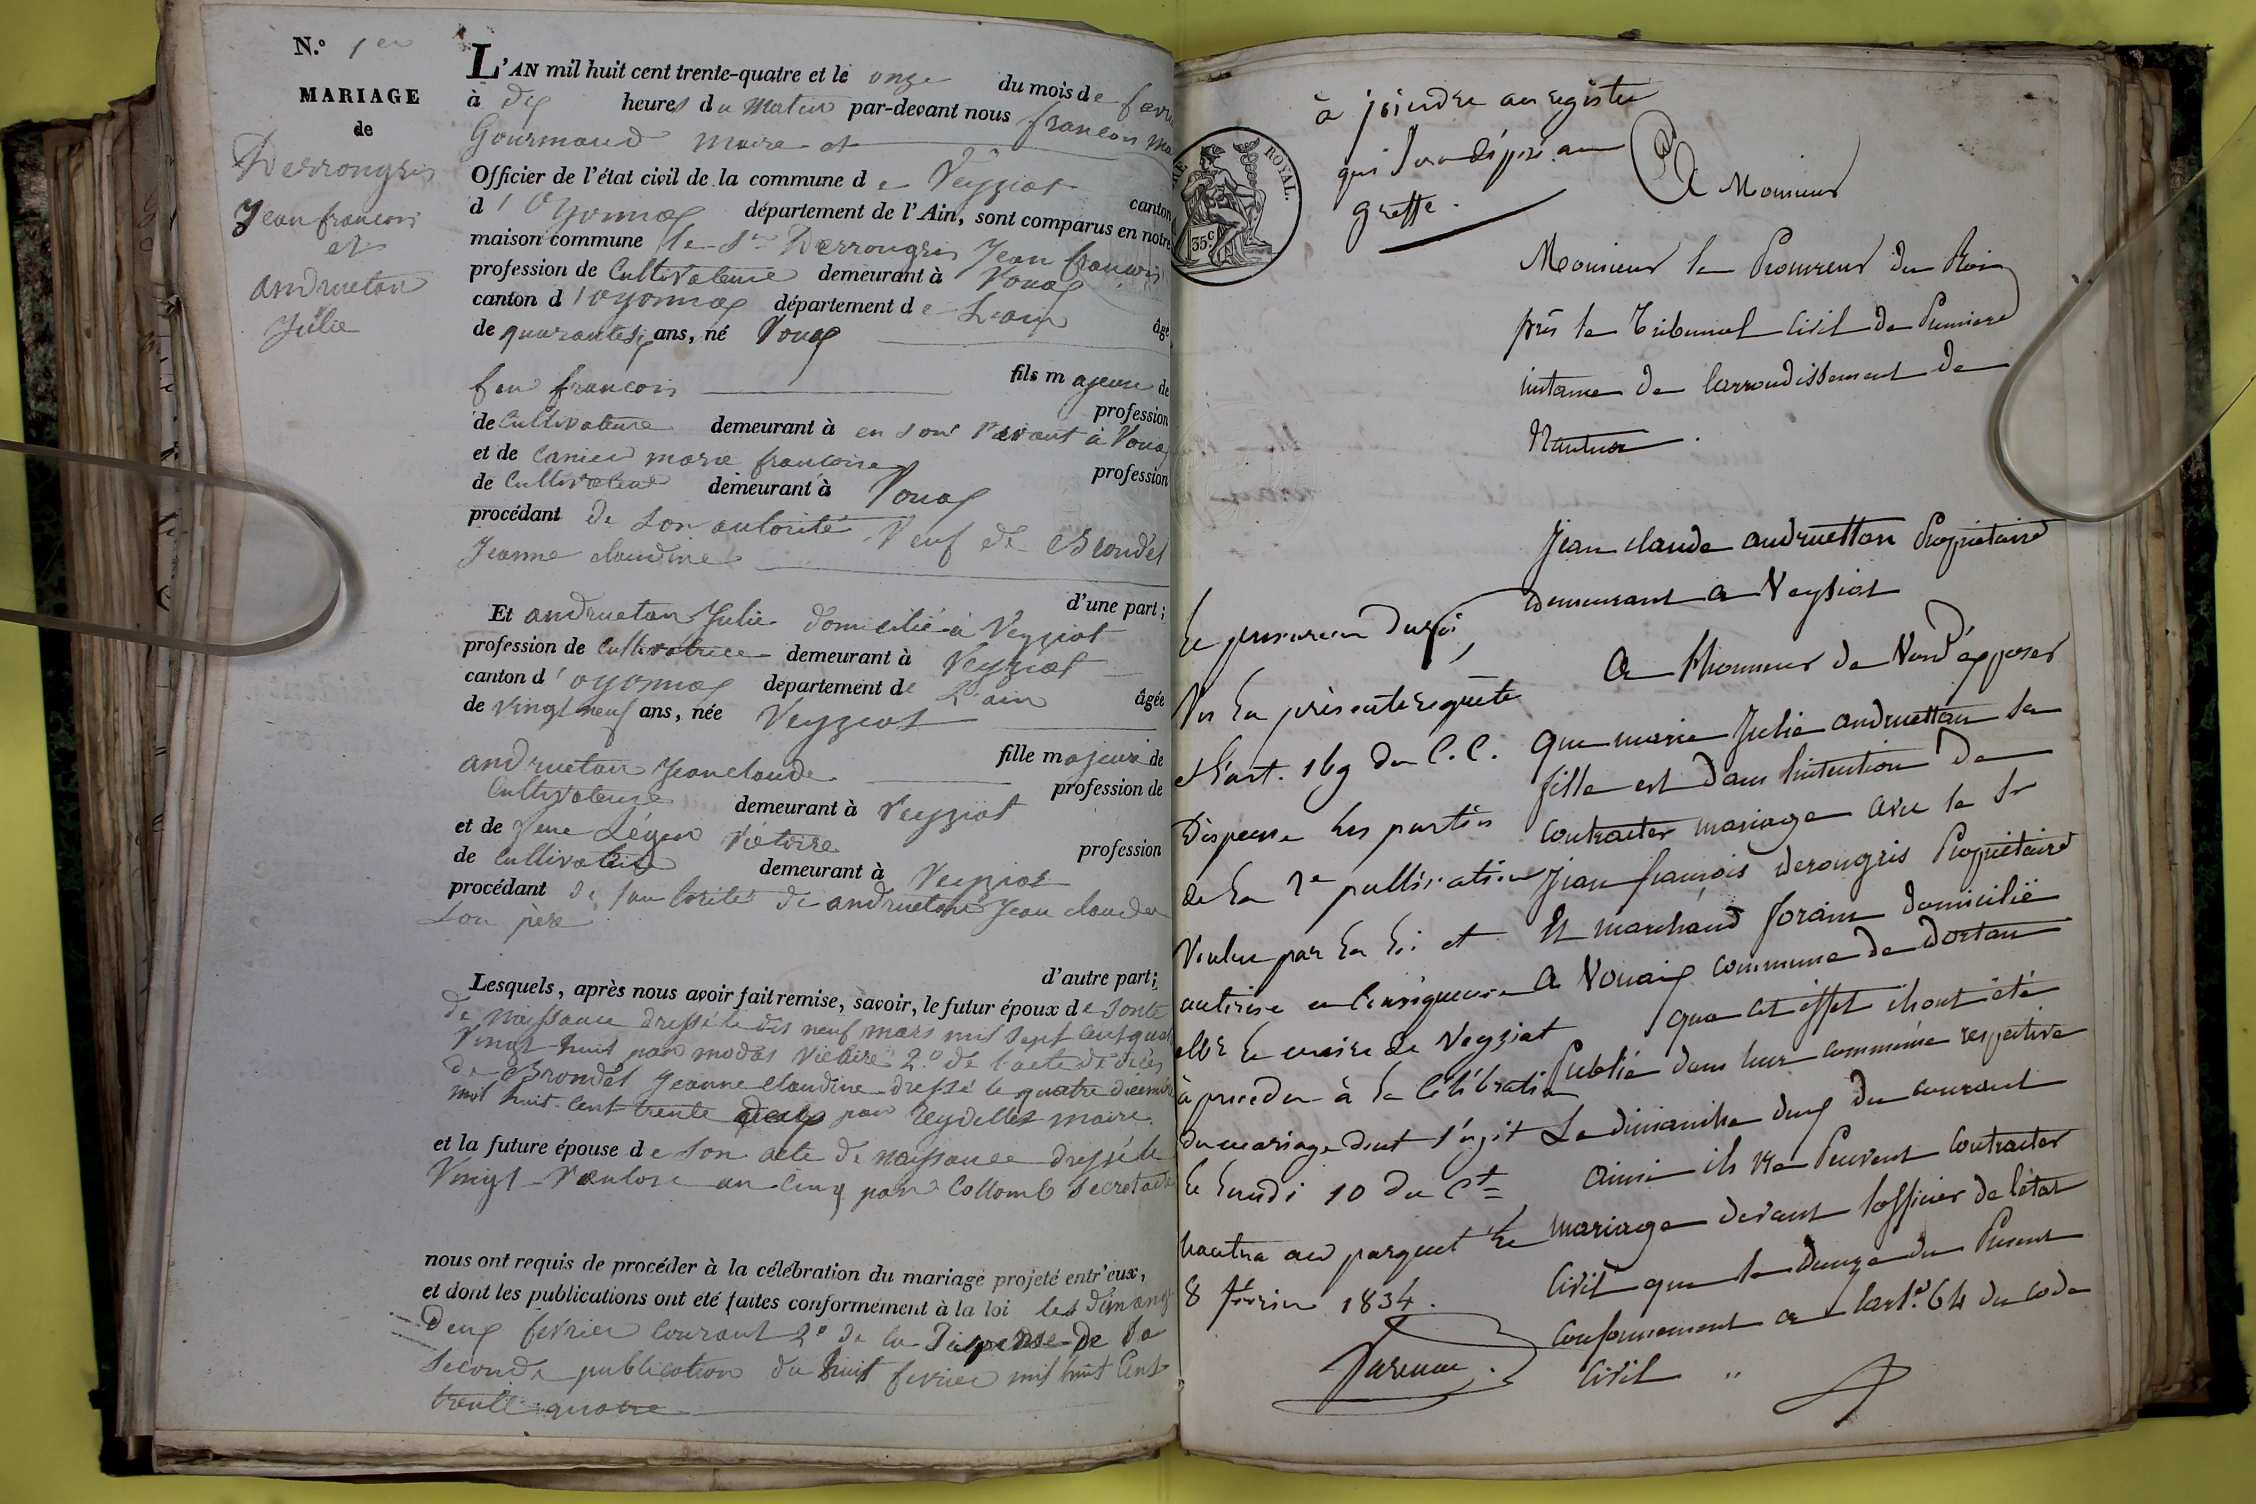 N.o 1er
MARIAGE
de
Derrongris
Jean françois
et
andruetan
Julie
L'AN mil huit cent trente-quatre et le onze du mois de
à dix heures du matin par-devant nous françois
Gourmand maire et
Officier de l'état civil de la commune de Veyziat canton
d'Oyonnax département de l'Ain, sont comparus en notre
maison commune le Sr Derrongris Jean françois
profession de Cultivateur demeurant à Vouax
canton d'oyonnax département de L'ain âgé
de quarantesix ans, né Vouax
fils majeur de
feu françois profession
de Cultivateur demeurant à en son vivant à Vouax
et de marie françoise profession
de Cultivateur demeurant à Vouax
procédant de son autorité Veuf de Brondel
Jeanne claudine
d'une part;
Et andruetan Julie domicilié à Veyziat
profession de Cultivatrice demeurant à Veyziat
canton d'oyonnax département de L'ain âgée
de vingt neuf ans, née Veyziat
fille majeure de
andruetan Jean claude profession de
Cultivateur demeurant à Veyziat
et de Victoire profession
de Cultivatrice demeurant à Veyziat
procédant de de andruetan Jean claude
Son père
d'autre part;
Lesquels, après nous avoir fait remise, savoir, le futur époux de
de naissance dressé le dix neuf mars mil sept cent quatre
Vingt huit par modas Vicaire 2.o de l'acte de décès
de Brondel Jeanne claudine dressé le quatre
mil huit cent trente deux par Reydellet maire
et la future épouse de son acte de naissance dressé le
Vingt Ventose an cinq par Collomb Secretaire
nous ont requis de procéder à la célébration du mariage projeté entr'eux,
et dont les publications ont été faites conformément à la loi les
Deux fevrier Courant 2o de la Dispense de la
Seconde publication du huit fevrier mil huit Cent
trente quatre
à joindre au registre
qui sera déposé au
greffe.
ROYAL.
35c
A Monsieur
Monsieur le Procureur du Roi
près le Tribunal Civil de Premiere
instance de larrondissement de
Nantua.
Jean claude andruettan Propriétaire
demeurant a Veyziat
a l'honneur de Vous exposer
que marie Julie andruettan sa
fille est dans lintention de
contracter mariage avec le Sr
Jean françois derongris Propriétaire
et marchand forain domicilié
a Vouaix commune de dortan
qua cet effet ils ont été
Publié dans leur commune respective
Le dimanche deux du courant
ainsi ils ne Peuvent contracter
mariage devant lofficier de létat
Civil que le douze du Présent
conformement a lart. 64 du code
Civil "
Le procureur du roi,
Vu la présente requête
et l'art. 169 du C. C.
Dispense les parties
de la 2e publication
Voulue par la loi et
autorise en conséquence
Mr le maire de Veyziat
à proceder à la célébration
du mariage dont s'agit
le lundi 10 du Ct
nantua au parquet le
8 février 1834.